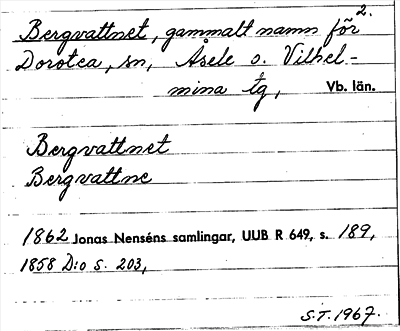 2.
Bergvattnet, gammalt namn för
Dorotea, sn, Åsele o. Vilhel-
mina tg, Vb. län.
Bergvattnet
Bergvattne
1862 Jonas Nenséns samlingar, UUB R 649, s. 189,
1858 D:o S. 203,
S.T. 1967.